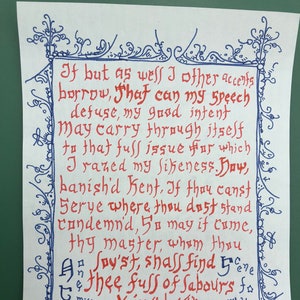 If but as well I other accents
borrow, That can my speech
defuse, my good intent
May carry through itself
to that full issue For which
I razed my likeness. Now,
banish'd Kent, If thou canst
Serve where thou dost stand
condemn'd, So may it come,
thy master, whom thou
lov'st, shall find
thee full of labours